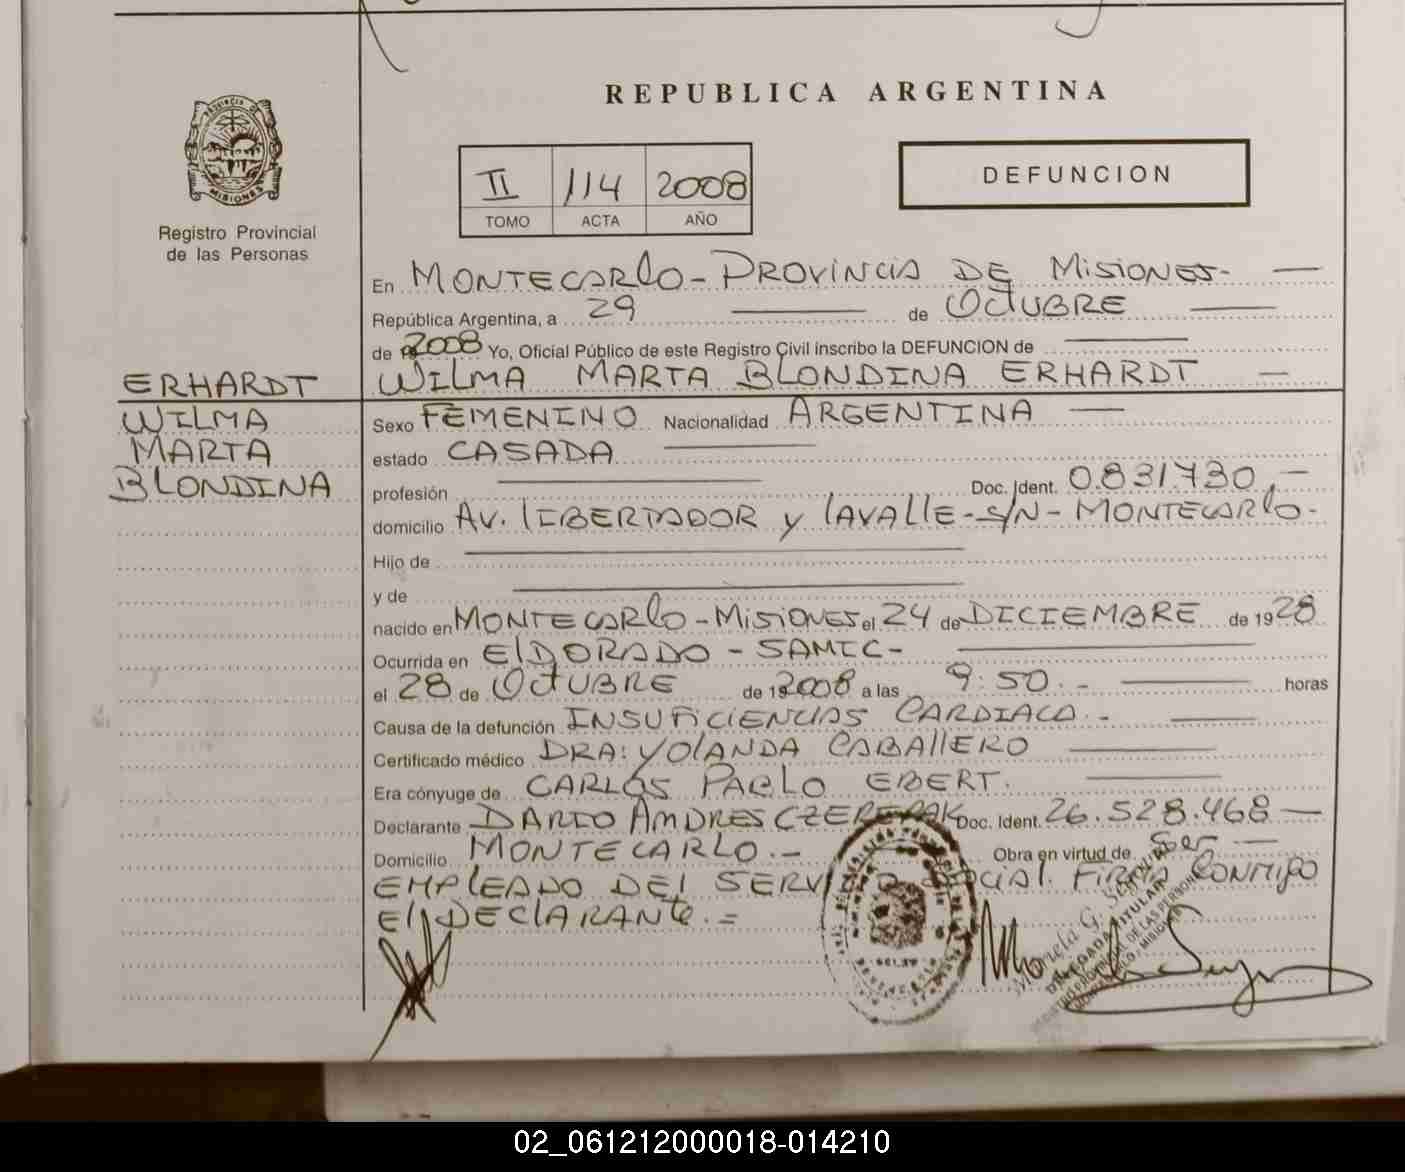 REPUBLICA ARGENTINA
PROVINCIA DE
MISIONES
Registro Provincial
de las Personas
II 114 2008
TOMO ACTA AÑO
DEFUNCION
En MONTECARLO - PROVINCIA DE MISIONES -
República Argentina, a 29 de OCTUBRE
de 2008 Yo, Oficial Público de este Registro Civil inscribo la DEFUNCION de
WILMA MARTA BLONDINA ERHARDT
ERHARDT
WILMA
MARTA
BLONDINA
Sexo FEMENINO Nacionalidad ARGENTINA
estado CASADA
profesión Doc. Ident. 0.831.730.-
domicilio AV. LIBERTADOR y LAVALLE - S/N - MONTECARLO -
Hijo de
y de
nacido en MONTECARLO - MISIONES el 24 de DICIEMBRE de 1928
Ocurrida en ELDORADO - SAMIC -
el 28 de OCTUBRE de 2008 a las 9:50.- horas
Causa de la defunción INSUFICIENCIAS CARDIACA.-
Certificado médico DRA: YOLANDA CABALLERO
Era cónyuge de CARLOS PABLO EBERT.
Declarante DARIO ANDRES CZEREPAK Doc. Ident. 26.528.468
Domicilio MONTECARLO.- Obra en virtud de Ser
EMPLEADO DEL SERVICIO SOCIAL. FIRMA CONMIGO
El DECLARANTE.=
DELEGADA TITULAR
02_061212000018-014210